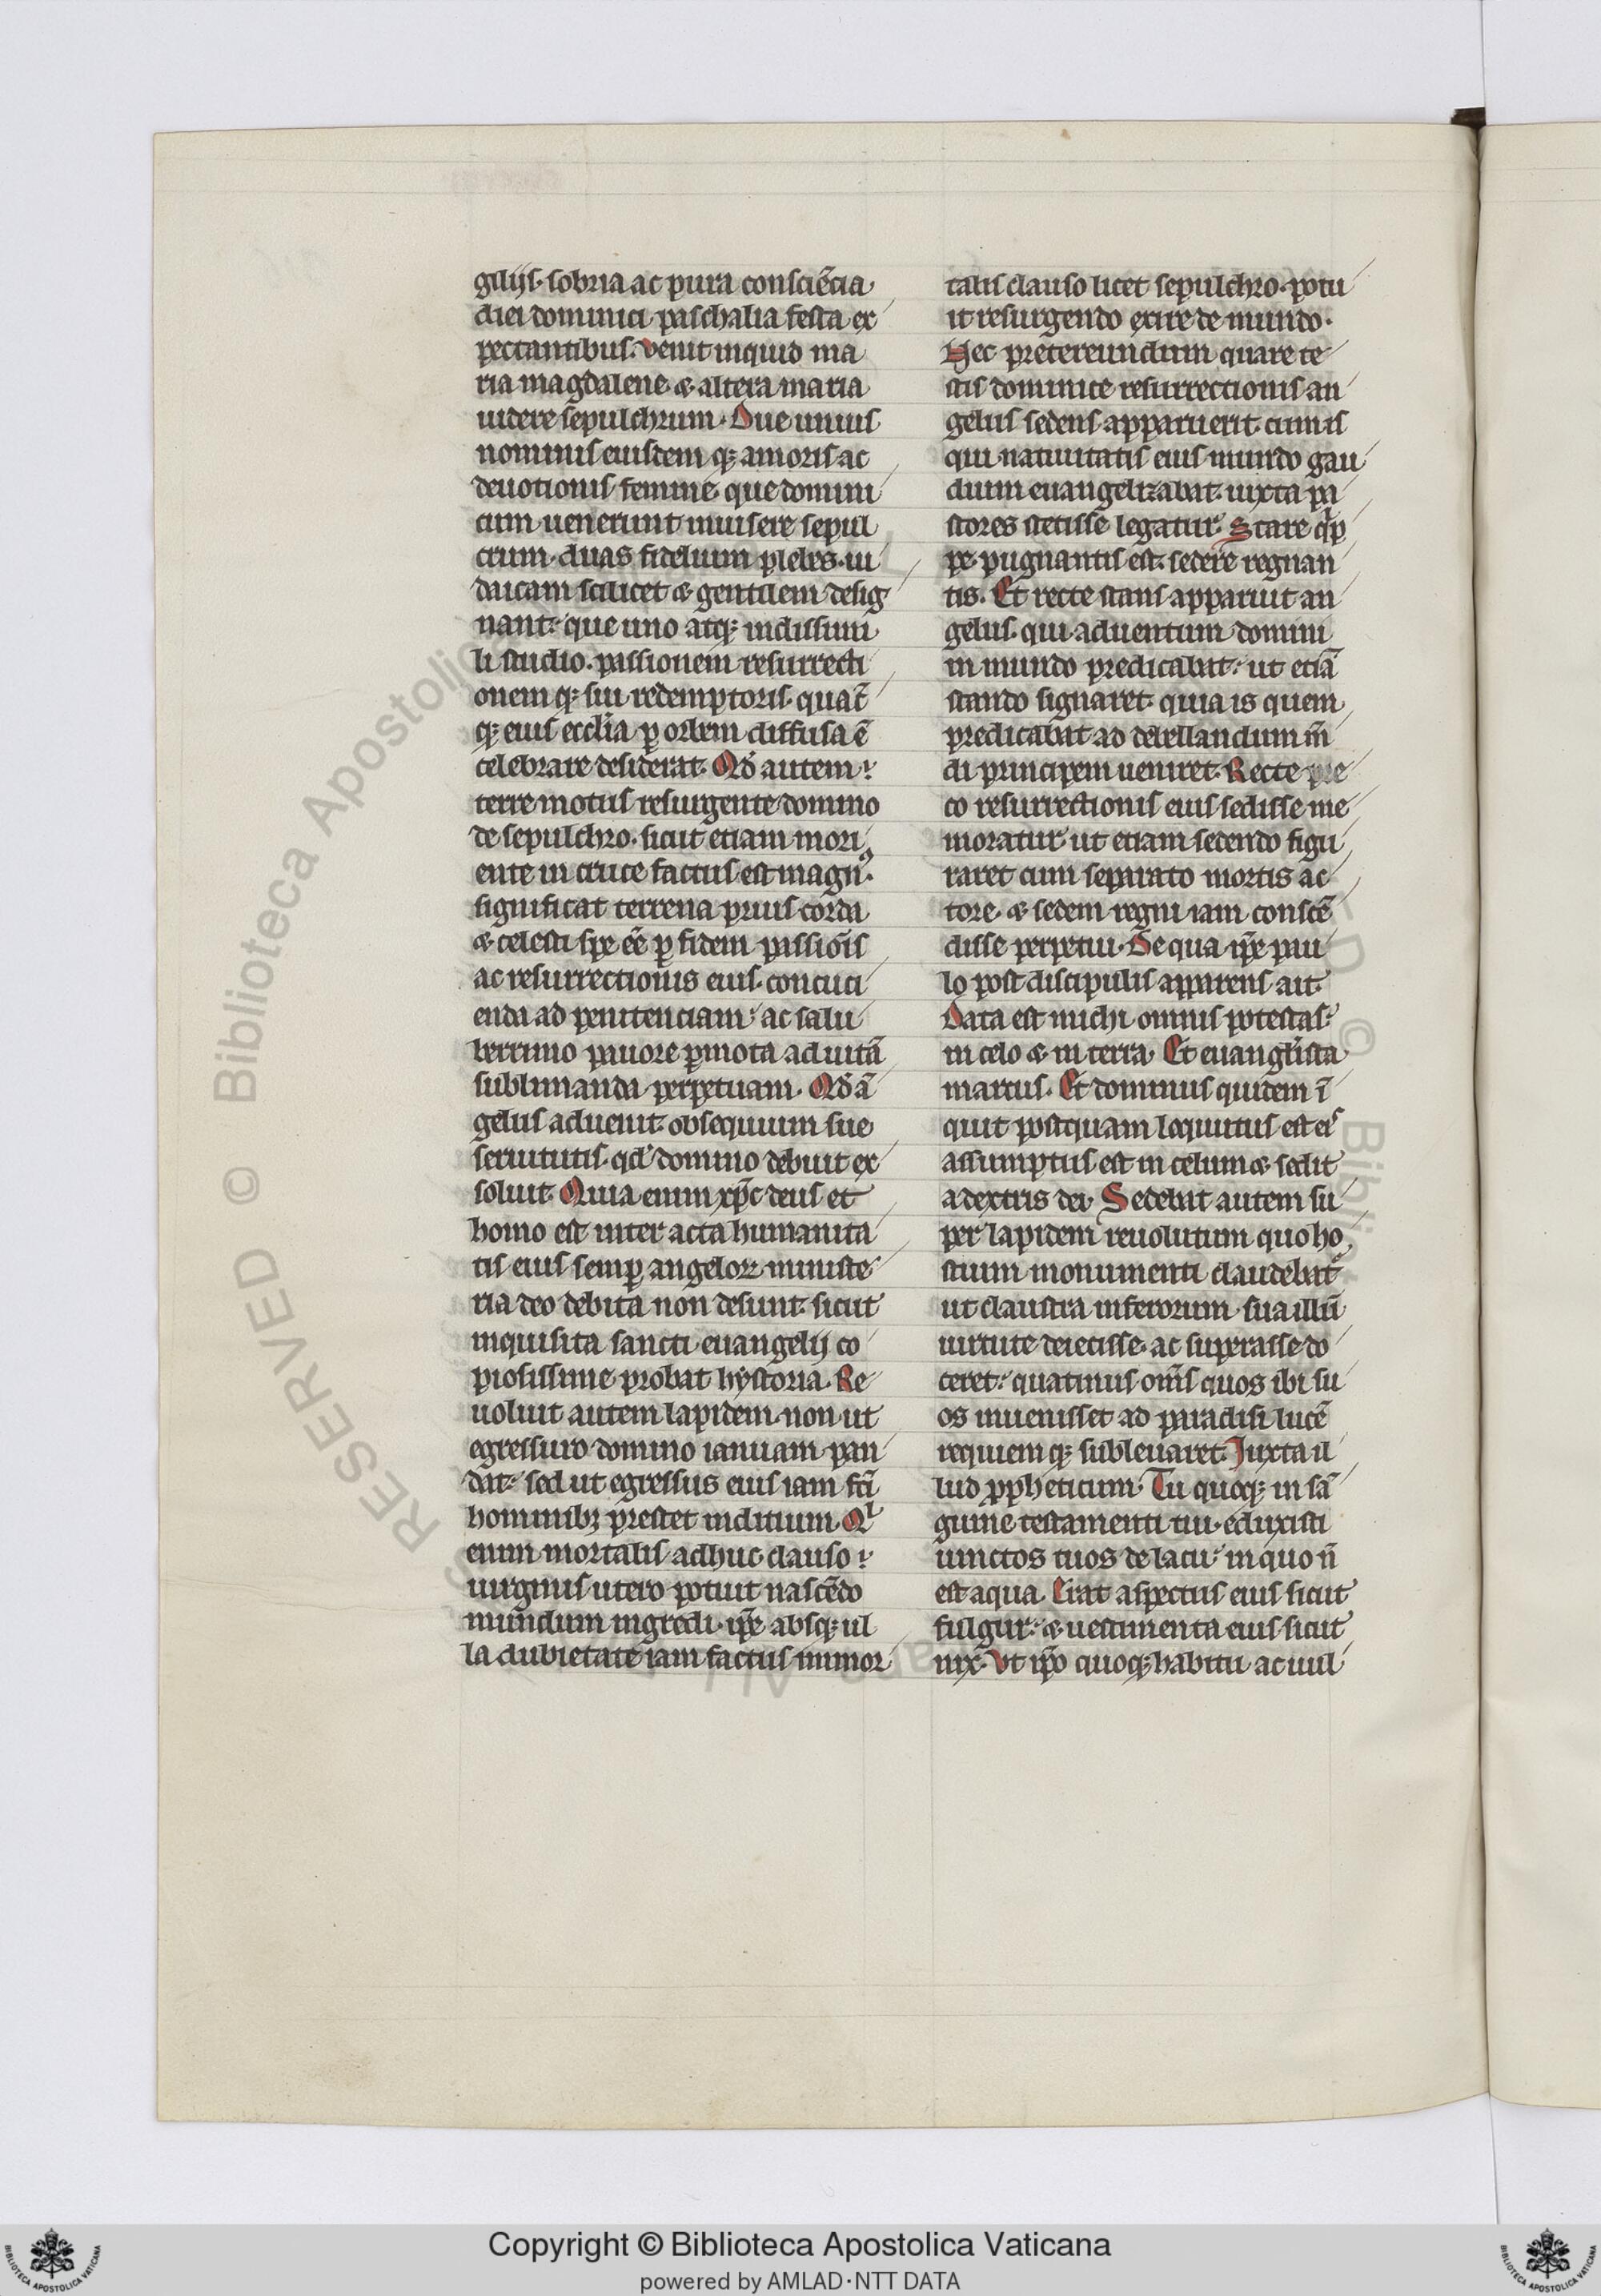 gilijs. sobria ac pura consciẽcia
diei dominici paschalia festa ex
pectantibus. Venit inquid ma
ria magdalene & altera maria
uidere sepulchrum. Due unius
nominis eiusdem q; amoris ac
deuotionis femine que domini
cum uenerunt inuisere sepul
crum. duas fidelium plebes. iu
daicam scilicet & gentilem desig
nant. que uno atq; indissimi
li studio. passionem resurrecti
onem q; sui redemptoris. quac̃
q; eius ecclĩa ꝑ orbem diffusa ẽ
celebrare desiderat. Qd̾ autem
terre motus resurgente domino
de sepulchro. sicut etiam mori
ente in cruce factus est magnꝰ.
significat terrena prius corda
& celesti spe eẽ ꝑ fidem passiõis
ac resurrectionis eius. concuci
enda ad penitenciam. ac salu
berrimo pauore ꝑmota ad uitã
sublimanda perpetuam. Qd̾ ã
gelus aduenit. obsequium sue
seruitutis. qd̾ domino debuit ex
soluit. Quia enim xp̃c deus et
homo est inter acta humanita
tis eius semꝑ angeloꝝ ministe
ria deo debita non desunt. sicut
inquisita sancti euangelij co
piosissime probat hystoria. Re
uoluit autem lapidem. non ut
egressuro domino ianuam pan
dat. sed ut egressus eius iam fc̃i
hominibꝫ prestet inditium. Qͥ
enim mortalis adhuc clauso
uirginis utero potuit nascẽdo
mundum ingredi. ip̃e absq; ul
la dubietate iam factus inmor
talis clauso licet sepulchro. potu
it resurgendo exire de mundo.
Nec pretereundum quare te
stis dominice resurrectionis an
gelus sedens apparuerit cum is
qui natiuitatis eius mundo gau
dium euangelizabat. iuxta pa
stores stetisse legatur. Stare qͥp
pe. pugnantis est. sedere regnan
tis. Et recte stans apparuit an
gelus. qui aduentum domini
in mundo predicabat. ut etiã
stando signaret. quia is quem
predicabat ad debellandum m̃
di principem ueniret. Recte pre
co resurrectionis eius sedisse me
moratur. ut etiam sedendo figu
raret eum separato mortis ac
tore. & sedem regni iam conscẽ
disse perpetui. De qua ip̃e pau
lo post discipulis apparens ait.
Data est michi omnis potestas.
in celo & in terra. Et euangl̃ista
marcus. Et dominus quidem ĩ
quit postquam loquutus est eis
assumptus est in celum & sedit
a dextris dei. Sedebat autem su
per lapidem reuolutum quo ho
stium monumenti claudebatᷣ
ut claustra inferorum sua illũ
uirtute deiecisse. ac superasse do
ceret. quatinus om̃s quos ibi su
os inuenisset ad paradisi lucẽ
requiem q; subleuaret. Juxta il
lud ꝓpheticum. Tu quoq; in sã
guine testamenti tui. eduxisti
uinctos tuos de lacu. in quo ñ
est aqua. Erat aspectus eius sicut
fulgur. & uestimenta eius sicut
nix. Vt ip̃o quoq; habitu ac uul
Copyright © Biblioteca Apostolica Vaticana
powered by AMLAD·NTT DATA